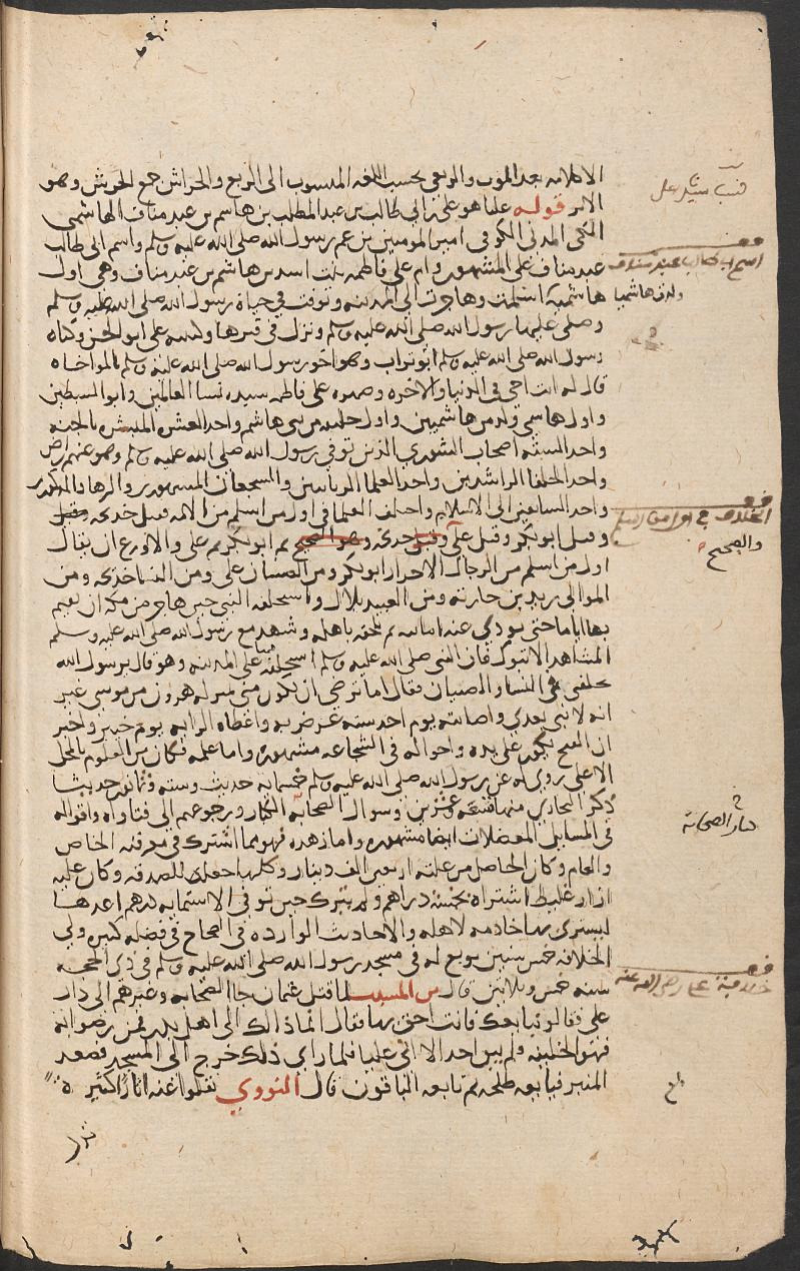 بعد الموت والربعي بحسب اللغه المنسوب الى الربع والحراش جمع الحرش وهو
الاثر قوله عليا هو على بن ابي طالب بن عبد المطلب بن هاشم بن عبد مناف الهاشمى
المكى المدنى الكوفى امير المومنين بن عم رسول الله صلى الله عليه وسلم واسم ابى طالب
عبد مناف على المشهور وام على فاطمه بنت اسد بن هاشم بن عبد مناف وهى اول
هاشمية اسلمت وهاجرت الى المدينه وتوفت في حياة رسول الله صلى الله عليه وسلم
وصلى عليها رسول الله صلى الله عليه وسلم ونزل في قبرها وكنيه على ابو الحسن وكناه
رسول الله صلى الله عليه وسلم ابو تراب وهو اخو رسول الله صلى الله عليه وسلم بالمواخاه
قال له انت اخى فى الدنيا والاخره وصهره على فاطمه سيده نسا العالمين وابو السبطين
واول هاشمى ولد من هاشميين واول خليفه من بنى هاشم واحد العشره المبشره بالجنه
واحد السته اصحاب الشورى الذين توفى رسول الله صلى الله عليه وسلم وهو عنهم راض
واحد الخلفا الراشدين واحد العلما الربانيين والشجعان المشهورين والزهاد المذكورين
واحد السابقين الى الاسلام واختلف العلما فى اول من اسلم من الامه فقيل خديجه وقيل
وقيل ابو بكر وقيل على وقيل خديجه وهو الصحيح ثم ابو بكر ثم على والاورع ان يقال
اول من اسلم من الرجال الاحرار ابو بكر ومن الصبيان على ومن النسا خديجه ومن
الموالى زيد بن حارثه ومن العبيد بلال واستخلفه النبى حين هاجر من مكه ان يقيم
بها اياما حتى يودى عنه امانته ثم يلحقه باهله وشهد مع رسول الله صلى الله عليه وسلم
المشاهد الا تبوك فان النبى صلى الله عليه وسلم استخلفه فيها على المدينه وهو قال يرسول الله
تخلفنى فى النسا والصبيان فقال اما ترضى ان تكون منى بمنزله هرون من موسى غير
انه لا نبى بعدى واصابته يوم احد سته عشر ضربه واعطاه الرايه يوم خيبر واخبر
ان الفتح يكون على يده واحواله فى الشجاعه مشهوره واما علمه فكان من العلوم بالمحل
الاعلى روى له عن رسول الله صلى الله عليه وسلم خمسمايه حديث وسته وثمانون حديثا
ذكر البخارى منها تسعه وعشرين وسوال الصحابه الكبار ورجوعهم الى فتاواه واقواله
فى المسايل المعضلات ايضا مشهوره واما زهده فهو مما اشترك فى معرفته الخاص
والعام وكان الحاصل من غلته اربعين الف دينار وكلها جعلها للصدقه وكان عليه
ازار غليظ اشتراه بخمسة دراهم ولم يترك حين توفى الا ستمايه درهم اعدها
ليشترى بها خادمه لاهله والاحاديث الوارده فى الصحاح فى فضله كثيره ولى
الخلافه خمس سنين بويع له فى مسجد رسول الله صلى الله عليه وسلم فى ذى الحجه
سنه خمس وثلاثين قال بن المسيب لما قتل عثمان جا الصحابه وغيرهم الى دار
على فقالوا نبايعك فانت احق بها فقال انما ذالك الى اهل بدر فمن رضوا به
فهو الخليفه ولم يبق احد الا اتى عليا فلما راى ذلك خرج الى المسجد فصعد
المنبر فبايعه طلحه ثم تابعه الباقون قال النووي نقلوا عنه اثارا كثيره
اسم ابى طالب عبد مناف
ولدت هاشميا
قف
اختلاف فى اول من اسلم
والصحيح
كبار الصحابه
قف
خلافة على رضى الله عنه